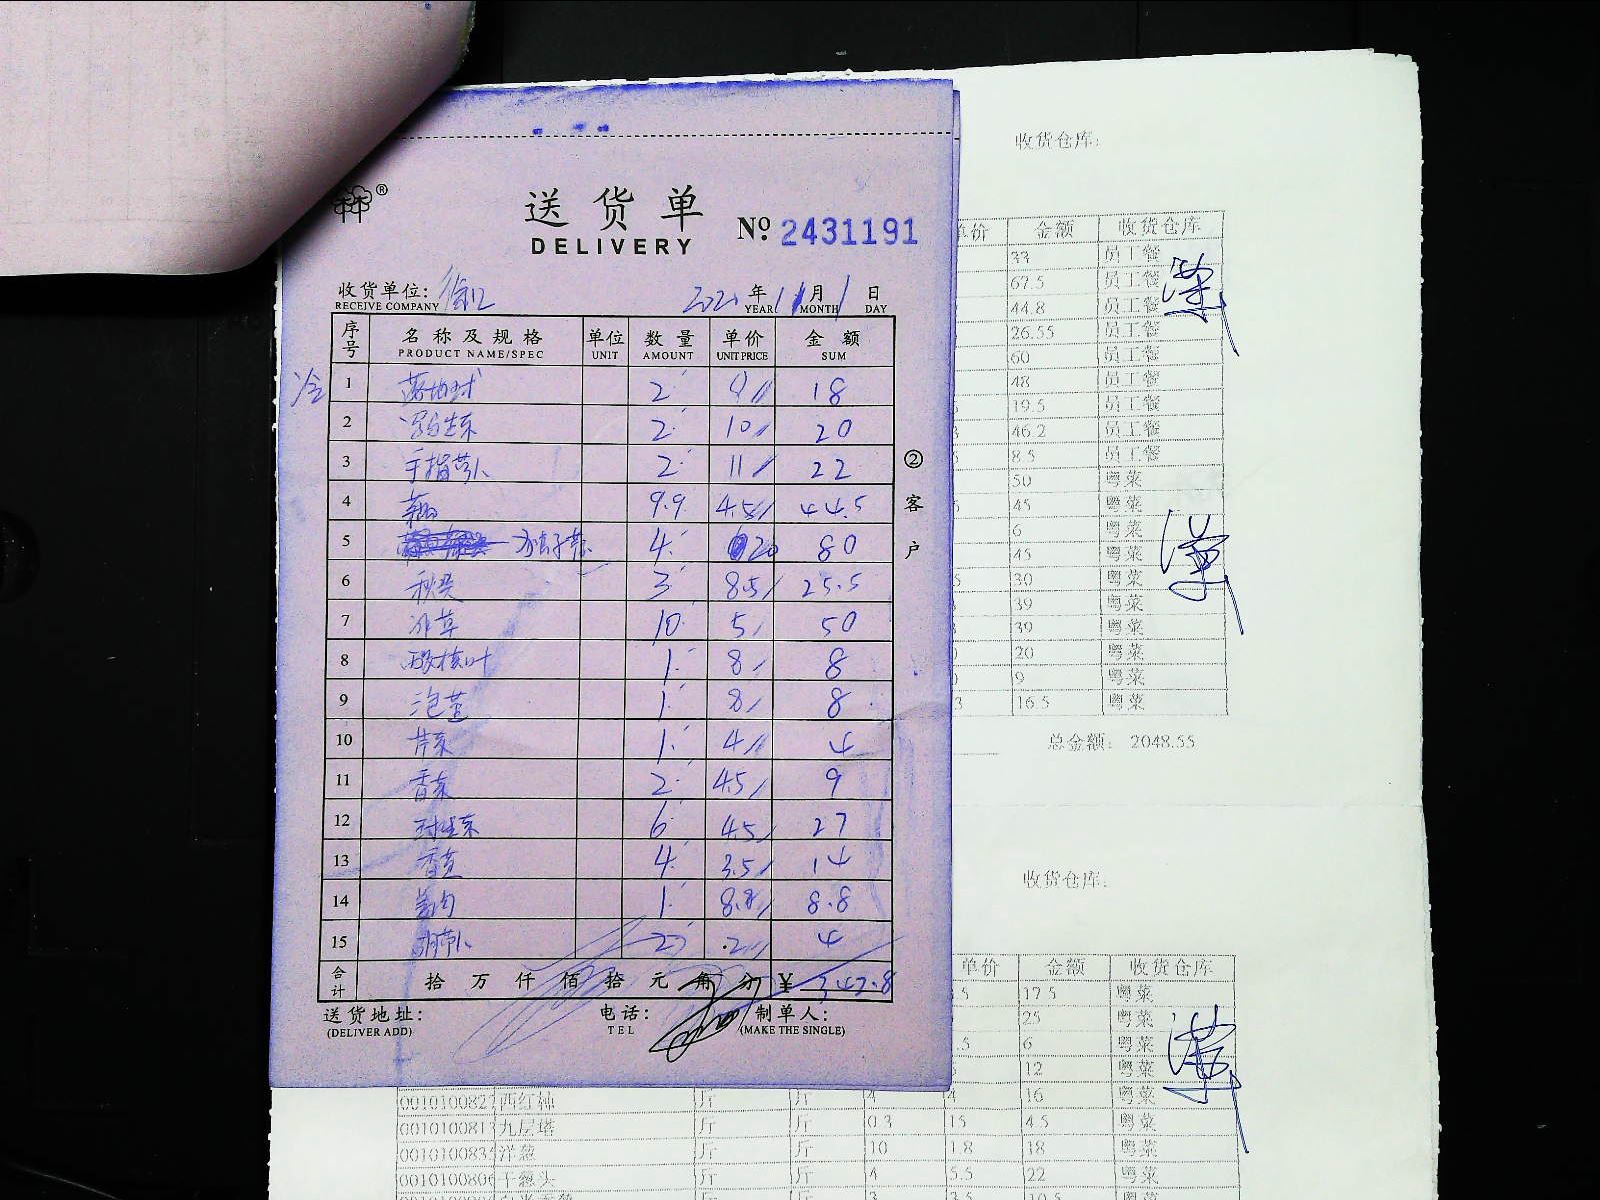 ®
送货单
DELIVERY
№ 2431191
收货单位:
RECEIVE COMPANY
年 11月1日
YEAR MONTH DAY
序号 名称及规格 单位 数量 单价 金额
PRODUCT NAME/SPEC UNIT AMOUNT UNIT PRICE SUM
1 落地球 2 9 18
2 2 10 20
3 手指萝卜 2 11 22
4 9.9 4.5 44.5
5 4 20 80
6 秋葵 3 8.5 25.5
7 冰草 10 5 50
8 1 8 8
9 1 8 8
10 芹菜 1 4 4
11 香菜 2 4.5 9
12 6 4.5 27
13 香芹 4 3.5 14
14 1 8.8 8.8
15 2 2 4
合计 拾万仟佰拾元角分 ¥ 342.8
送货地址: 电话: 制单人:
(DELIVER ADD) TEL (MAKE THE SINGLE)
②客户
收货仓库:
单价 金额 收货仓库
33 员工餐
67.5 员工餐
44.8 员工餐
26.55 员工餐
60 员工餐
48 员工餐
19.5 员工餐
46.2 员工餐
8.5 员工餐
50 粤菜
45 粤菜
6 粤菜
45 粤菜
30 粤菜
39 粤菜
39 粤菜
20 粤菜
9 粤菜
16.5 粤菜
总金额: 2048.55
收货仓库:
单价 金额 收货仓库
.5 17.5 粤菜
25 粤菜
.5 6 粤菜
12 粤菜
001010082 西红柿 斤 斤 4 4 16 粤菜
001010081 九层塔 斤 斤 0.3 15 4.5 粤菜
001010083 洋葱 斤 斤 10 1.8 18 粤菜
001010080 干葱头 斤 斤 4 5.5 22 粤菜
斤 斤 3 3.5 10.5 粤菜